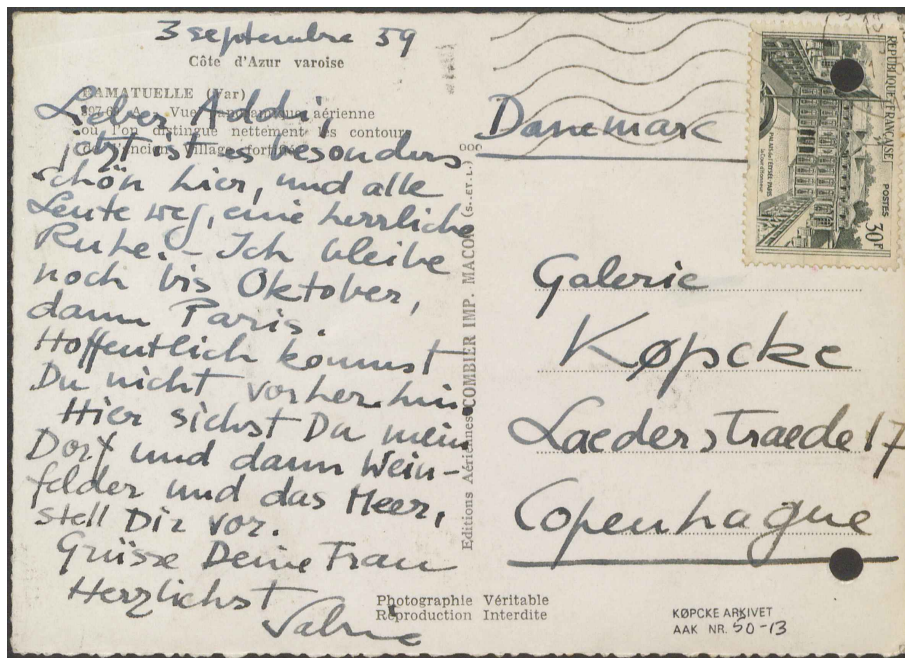 3 septembre 59
Côte d'Azur varoise
RAMATUELLE (Var)
Vue panoramique aérienne
où l'on distingue nettement les contours
de l'ancien village fortifié
Lieber Addi,
jetzt ist es besonders
schön hier, und alle
Leute weg, eine herrliche
Ruhe. - Ich bleibe
noch bis Oktober,
dann Paris.
Hoffentlich kommst
Du nicht vorher hin.
Hier siehst Du mein
Dorf und dann Wein-
felder und das Meer,
stell Dir vor.
Grüsse Deine Frau
Herzlichst
Editions Aériennes COMBIER IMP. MACON (S.-ET-L.)
Photographie Véritable
Reproduction Interdite
REPUBLIQUE FRANÇAISE
POSTES
30F
PALAIS DE L'ÉLYSÉE PARIS
Danemark
Galerie
Køpcke
Laederstraede 17
Copenhague
KØPCKE ARKIVET
AAK NR. 50-13